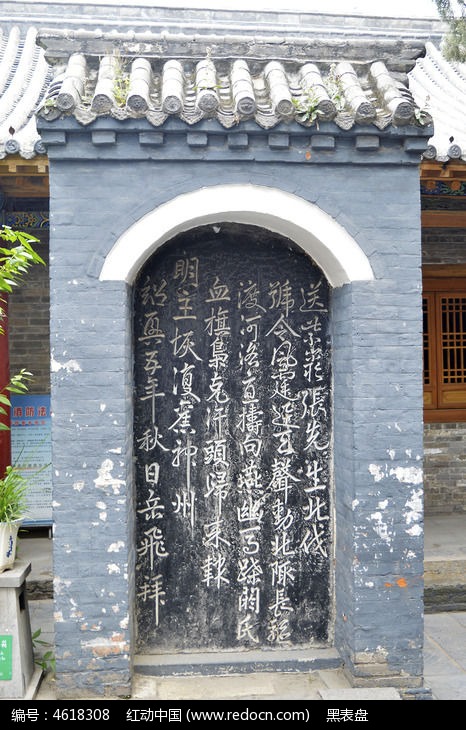 送紫巖張先生北伐
號令風霆迅天聲動北陬長驅
渡河洛直擣向燕幽馬蹀閼氏
血旗梟克汗頭歸來報
明主恢復舊神州
紹興五年秋日岳飛拜
编号：4618308 红动中国 (www.redocn.com) 黑表盘